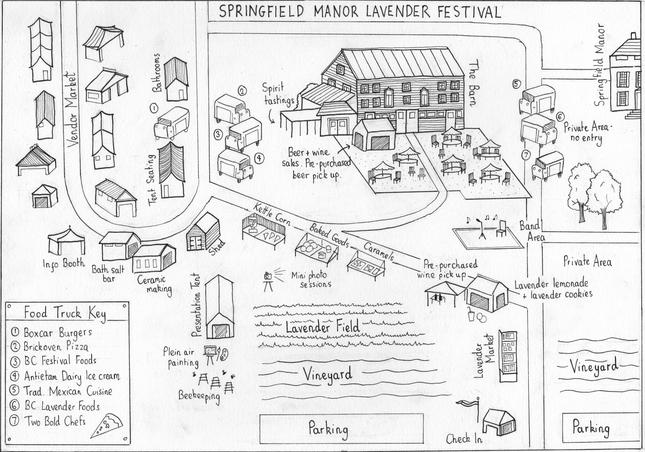 SPRINGFIELD MANOR LAVENDER FESTIVAL
Vendor Market
Bathrooms
1
Tent Seating
2
3
4
Spirit
tastings
The Barn
Beer + wine
sales. Pre-purchased
beer pick up.
5
6
7
Springfield Manor
Private Area -
no entry
Kettle Corn
Baked Goods
Caramels
Band
Area
Info Booth
Bath salt
bar
Ceramic
making
Shed
Mini photo
sessions
Pre-purchased
wine pick up
Lavender lemonade
+ lavender cookies
Private Area
Presentation Tent
Lavender Field
Lavender
Market
Plein air
painting
Beekeeping
Vineyard
Vineyard
Parking
Check In
Parking
Food Truck Key
1 Boxcar Burgers
2 Brickoven Pizza
3 BC Festival Foods
4 Antietam Dairy Ice cream
5 Trad. Mexican Cuisine
6 BC Lavender Foods
7 Two Bold Chefs